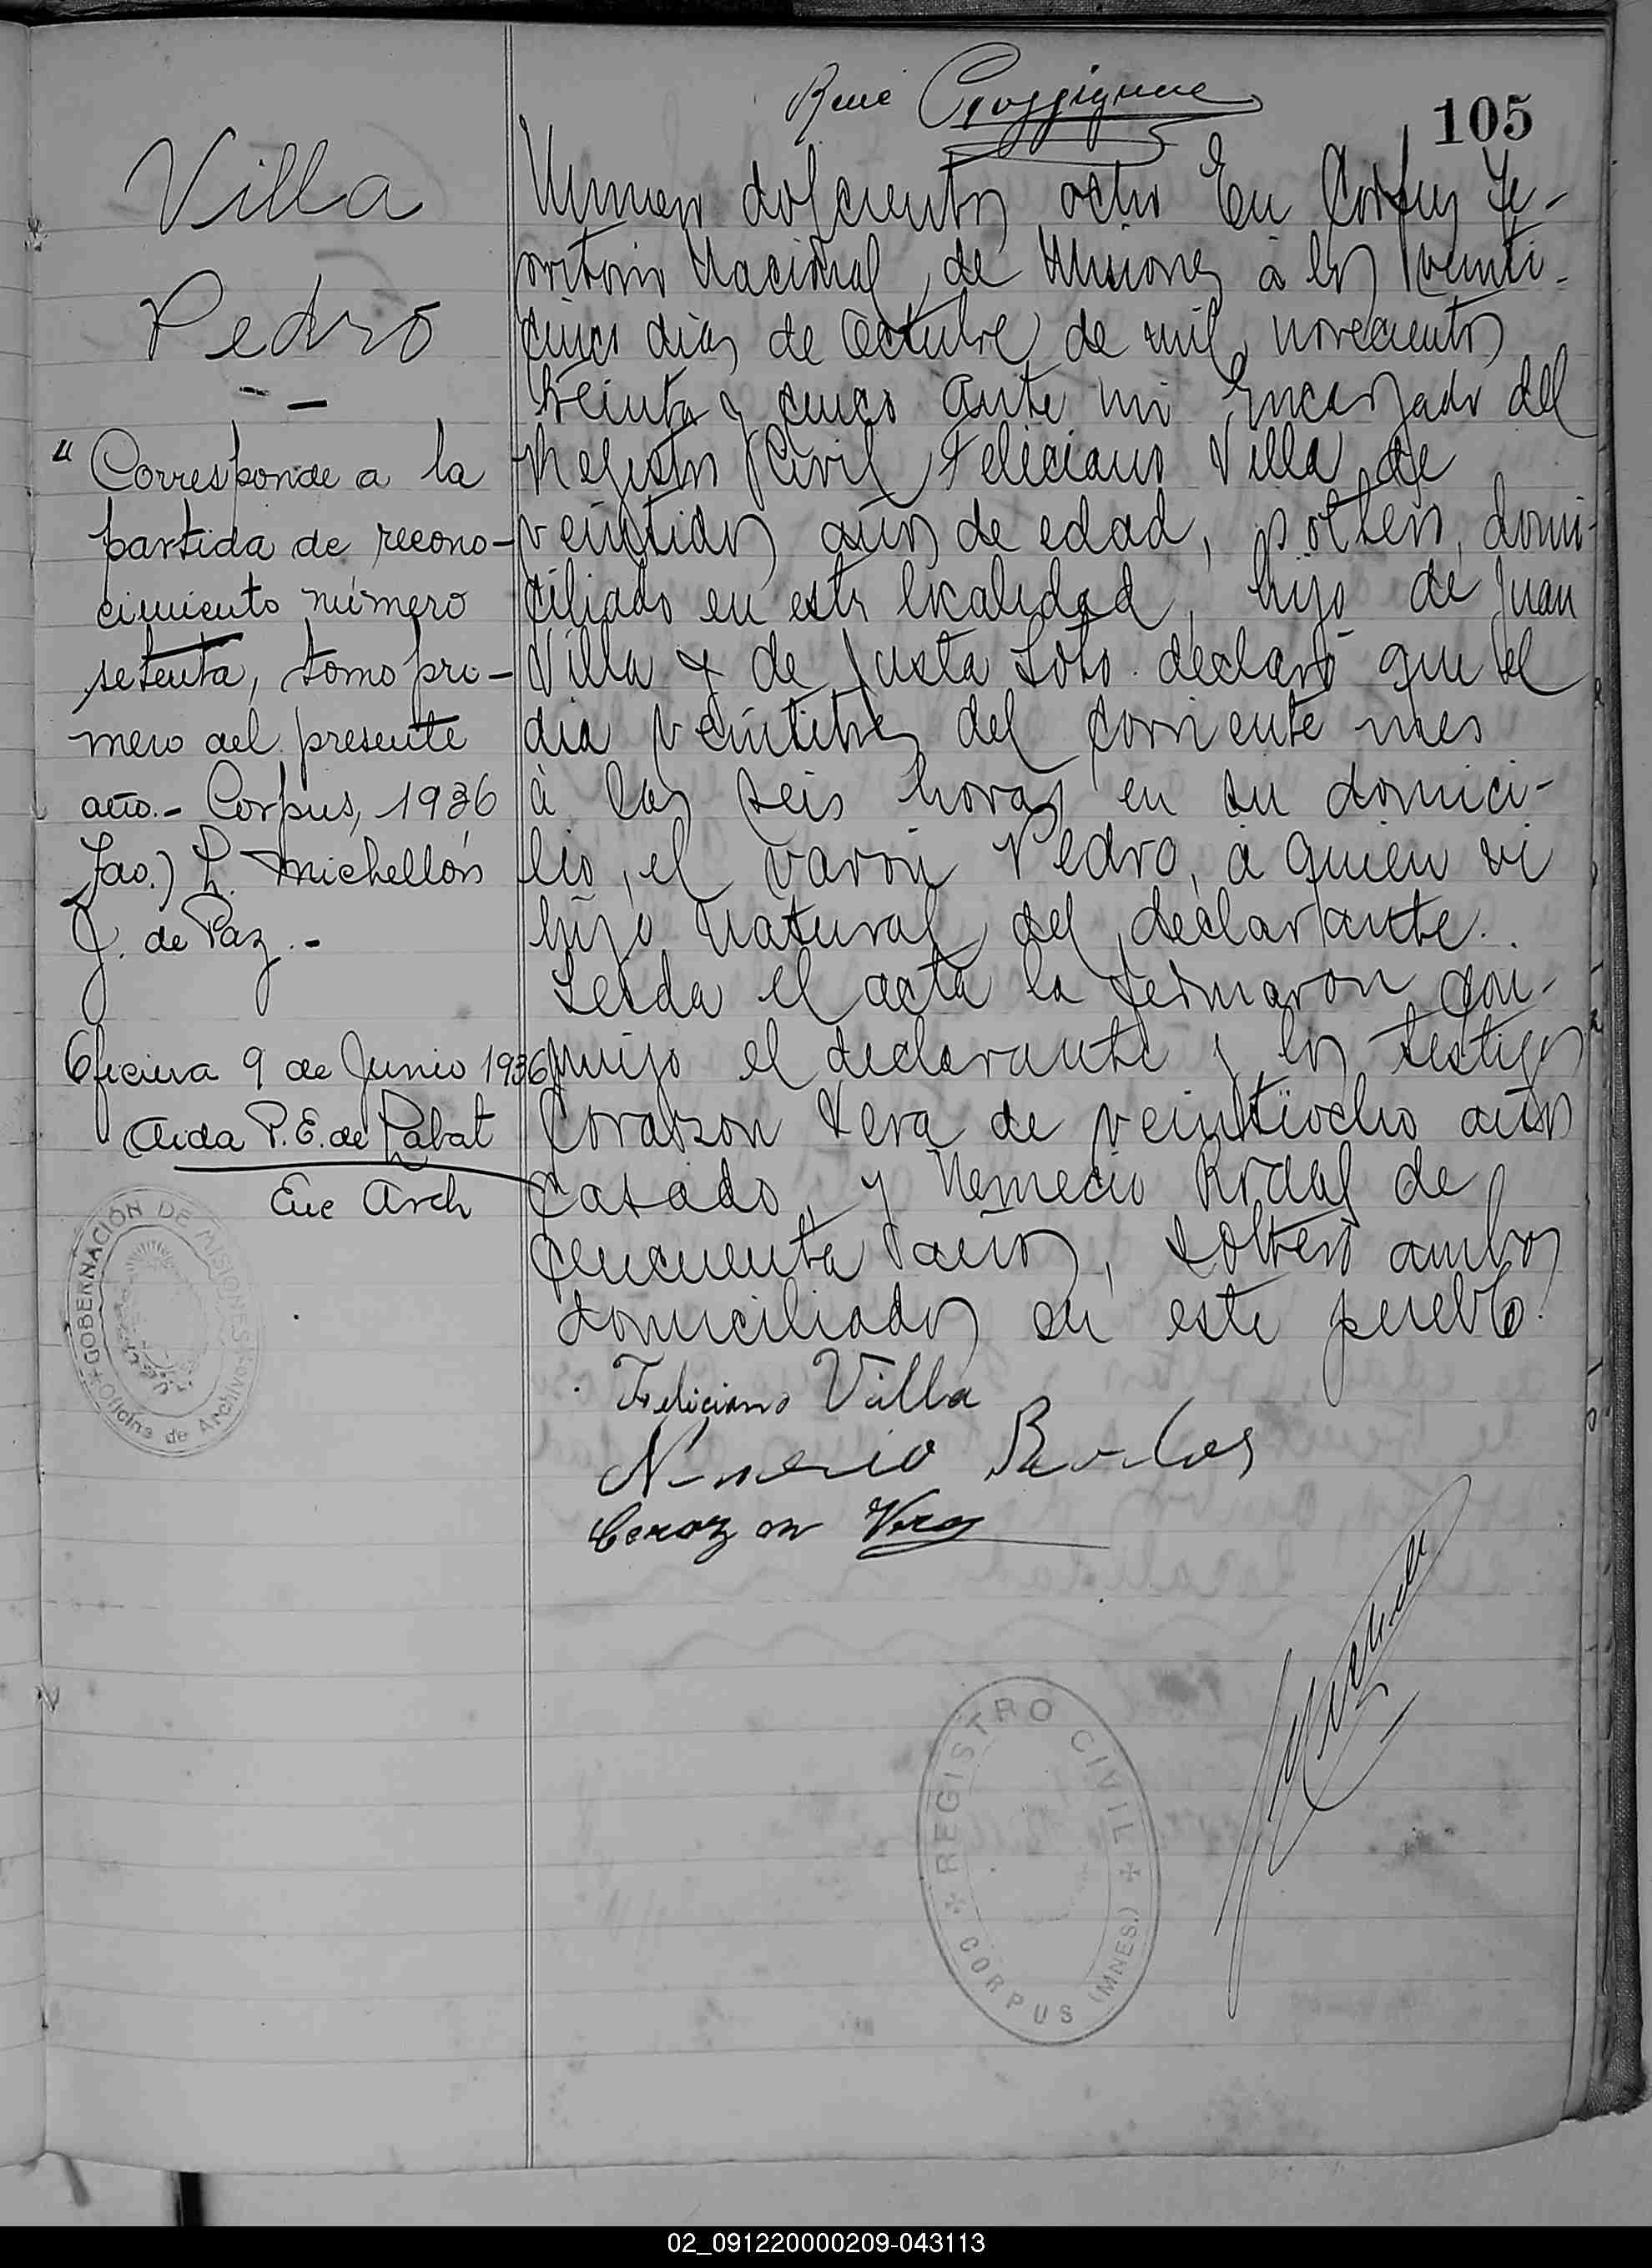 René
105
Villa
Pedro
"Corresponde a la
partida de recono-
cimiento número
setenta, tomo pri-
mero del presente
año.- Corpus, 1936
Fdo.) L. Michellón
J. de Paz.-
Oficina 9 de Junio 1936
Aida P. E. de Labat
Enc Arch
GOBERNACIÓN DE MISIONES
Oficina de Archivo
Numero doscientos ocho En Corpus Te-
rritorio Nacional de Misiones á los veinti-
cinco dias de Octubre de mil novecientos
treinta y cinco ante mi Encargado del
Registro Civil Feliciano Villa de
veintidos años de edad, soltero, domi-
ciliado en esta localidad, hijo de Juan
Villa y de Justa Soto. declaró que el
dia veintitres del corriente mes
á las seis horas en su domici-
lio, el varón Pedro, á quien vi
hijo natural del declarante.
Leida el acta la firmaron con-
migo el declarante y los testigos
Corazon Vera de veintiocho años
casado, y Nemecio de
cincuenta años, soltero ambos
domiciliados en este pueblo.
Feliciano Villa
Corazon Vera
REGISTRO CIVIL
CORPUS (MNES.)
02_091220000209-043113